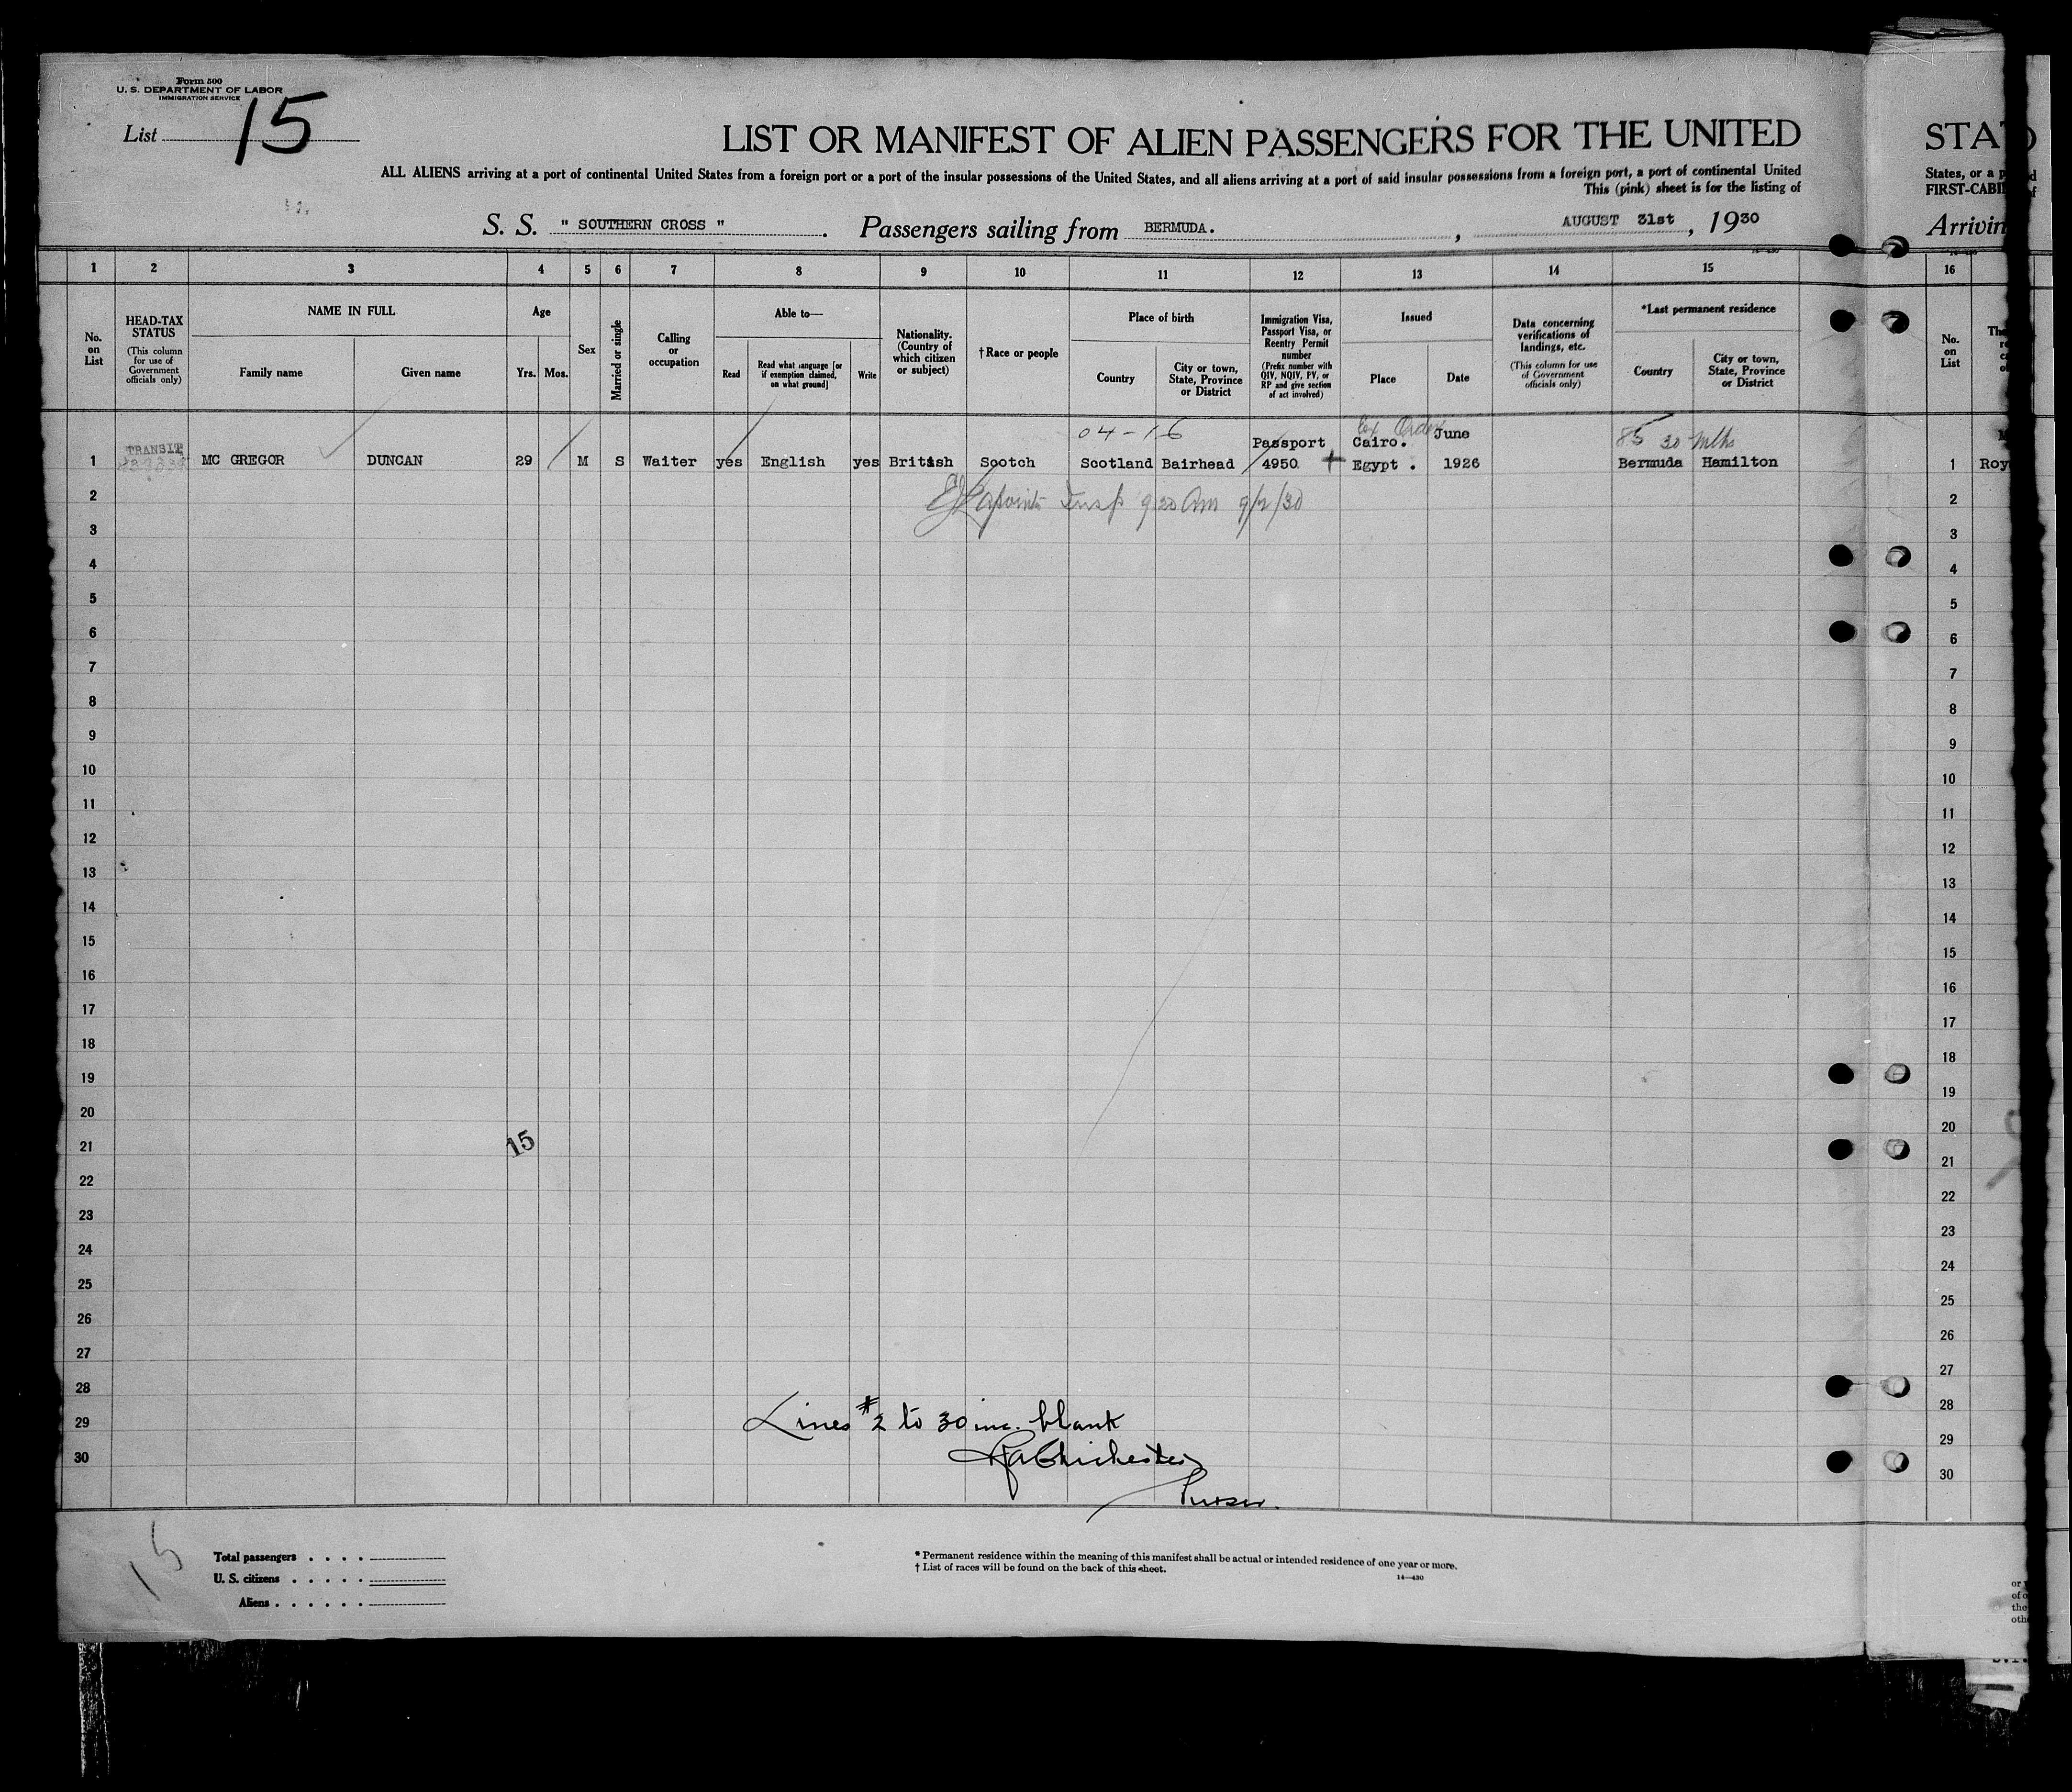 Form 500
U. S. DEPARTMENT OF LABOR
IMMIGRATION SERVICE
List 15
LIST OR MANIFEST OF ALIEN PASSENGERS FOR THE UNITED
STAT
ALL ALIENS arriving at a port of continental United States from a foreign port or a port of the insular possessions of the United States, and all aliens arriving at a port of said insular possessions from a foreign port, a port of continental United
States, or a p
This (pink) sheet is for the listing of
FIRST-CABI
S. S. " SOUTHERN CROSS ". Passengers sailing from BERMUDA. , AUGUST 31st, 1930
Arrivin
1 2 3 4 5 6 7 8 9 10 11 12 13 14 15 16
No. on List
HEAD-TAX STATUS
(This column for use of Government officials only)
NAME IN FULL
Family name
Given name
Age
Yrs. Mos.
Sex
Married or single
Calling or occupation
Able to—
Read
Read what language [or if exemption claimed, on what ground]
Write
Nationality. (Country of which citizen or subject)
†Race or people
Place of birth
Country
City or town, State, Province or District
Immigration Visa, Passport Visa, or Reentry Permit number
(Prefix number with QIV, NQIV, PV, or RP and give section of act involved)
Issued
Place
Date
Data concerning verifications of landings, etc.
(This column for use of Government officials only)
*Last permanent residence
Country
City or town, State, Province or District
No. on List
04-16
85 30 Mths
TRANSIT Passport Cairo. June
1 MC GREGOR DUNCAN 29 M S Waiter yes English yes British Scotch Scotland Bairhead 4950 Egypt . 1926 Bermuda Hamilton 1 Roy
Insp 9 20 Am 9/2/30
2 2
3 3
4 4
5 5
6 6
7 7
8 8
9 9
10 10
11 11
12 12
13 13
14 14
15 15
16 16
17 17
18 18
19 19
20 20
21 15 21
22 22
23 23
24 24
25 25
26 26
27 27
28 28
29 29
30 30
Lines #2 to 30 inc. blank
Chichester
Purser.
15
Total passengers
U. S. citizens
Aliens
* Permanent residence within the meaning of this manifest shall be actual or intended residence of one year or more.
† List of races will be found on the back of this sheet.
14—430